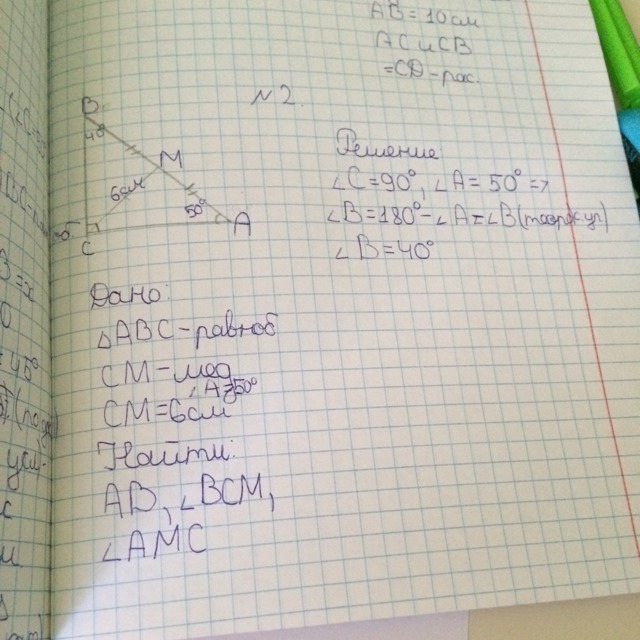 AB=10см
AC и CB
=CD-рас.
N2.
B
40
M
6см
50°
A
C
Решение:
∠C=90°, ∠A=50° =>
∠B=180°-∠A-∠B(теор)
∠B=40°
Дано:
△ABC-равноб
CM-мед
∠A=50°
CM=6см
Найти:
AB, ∠BCM,
∠AMC